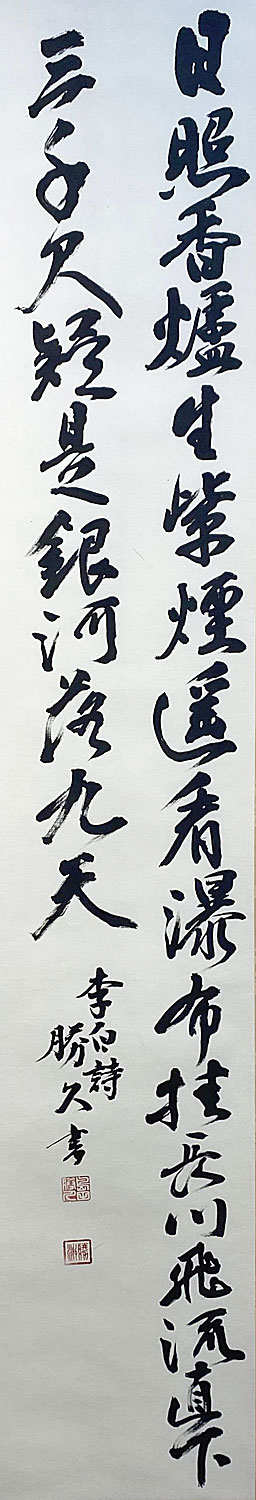 日照香爐生紫煙遥看瀑布挂長川飛流直下
三千尺疑是銀河落九天
李白詩
勝久書